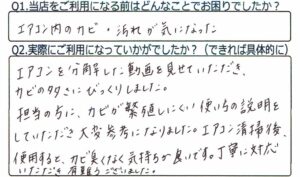 Q1.当店をご利用になる前はどんなことでお困りでしたか？
エアコン内のカビ・汚れが気になった
Q2.実際にご利用になっていかがでしたか？（できれば具体的に）
エアコンを分解した動画を見せていただき、
カビの多さにびっくりしました。
担当の方に、カビが繁殖しにくい使い方の説明を
していただき大変参考になりました。エアコン清掃後、
使用すると、カビ臭くなく気持ちが良いです。丁寧に対応
いただき有難うございました。